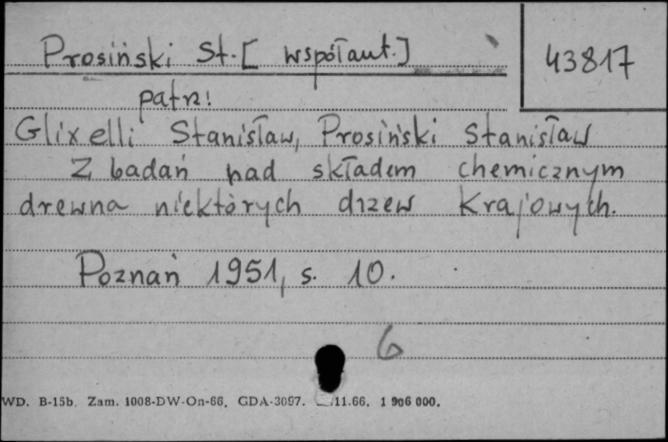 Prosiński St. [współaut.]
43817
patrz:
Glixelli Stanisław, Prosiński Stanisław
Z badań nad składem chemicznym
drewna niektórych drzew krajowych.
Poznań 1951, s. 10.
6
WD. B-15b. Zam. 1008-DW-On-66. GDA-3097. 11.66. 1 906 000.